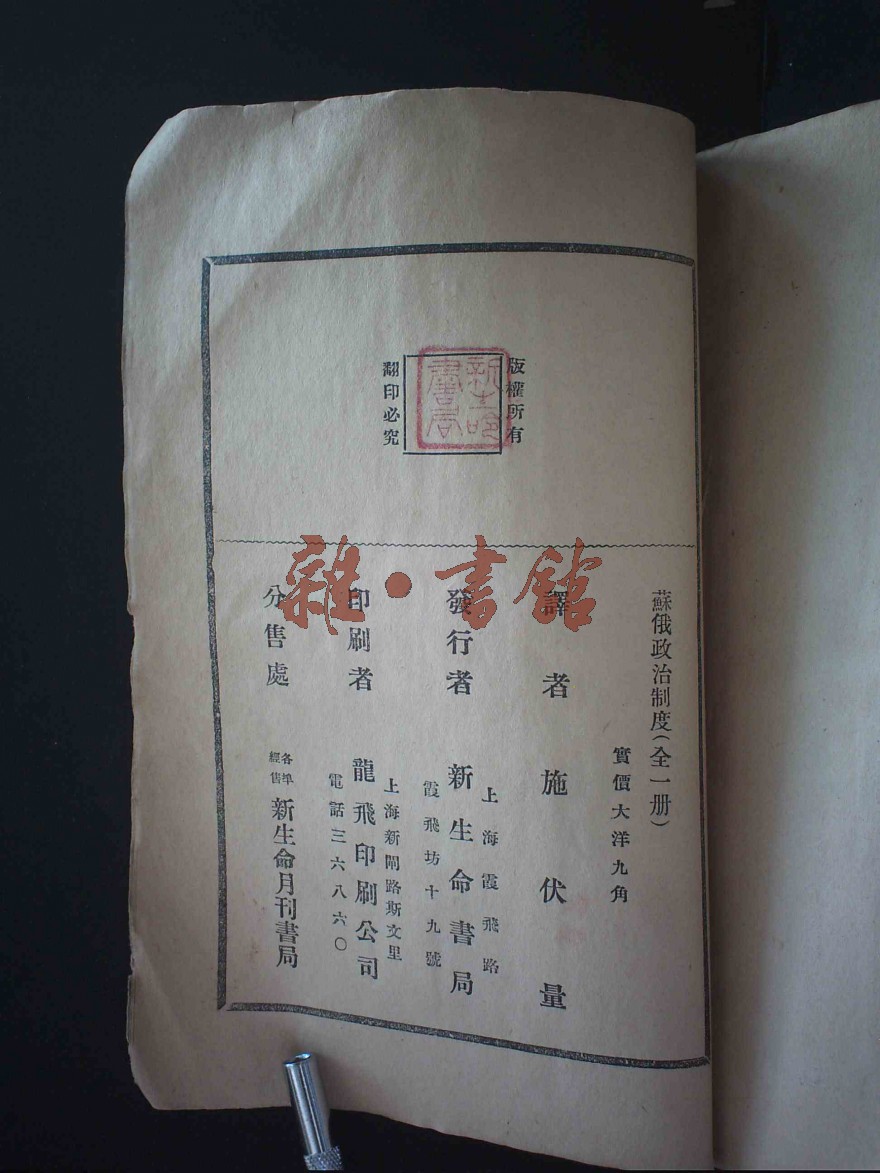 版權所有
新生命書局
翻印必究
蘇俄政治制度(全一册)
實價大洋九角
譯者 施伏量
發行者 新生命書局
上海霞飛路
霞飛坊十九號
印刷者 龍飛印刷公司
上海新閘路斯文里
電話三六八六〇
分售處 各埠經售 新生命月刊書局
雜·書館